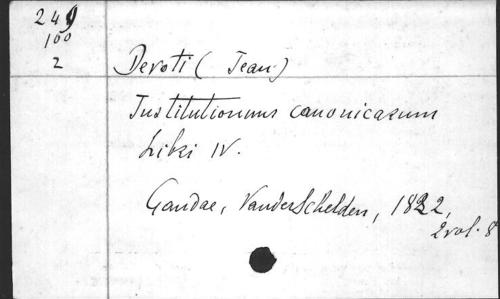 249
100
2
Devoti ( Jean )
Institutionum canonicarum
Libri IV.
Gandae, Vanderschelden, 1822,
2 vol. 8°